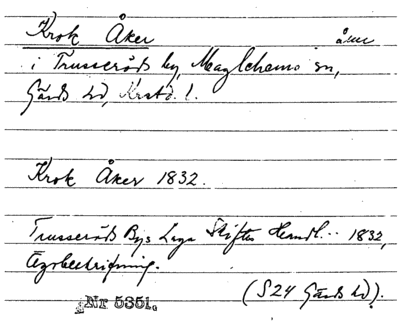 Krok Åker
i Trusseröds by, Maglehems sn,
Gärds hd, Krstd. l.
Krok Åker 1832.
Trusseröds Bys Laga Skiftes Handl... 1832,
Ägobeskrifning.
(S24 Gärds hd).
Nr 5351.